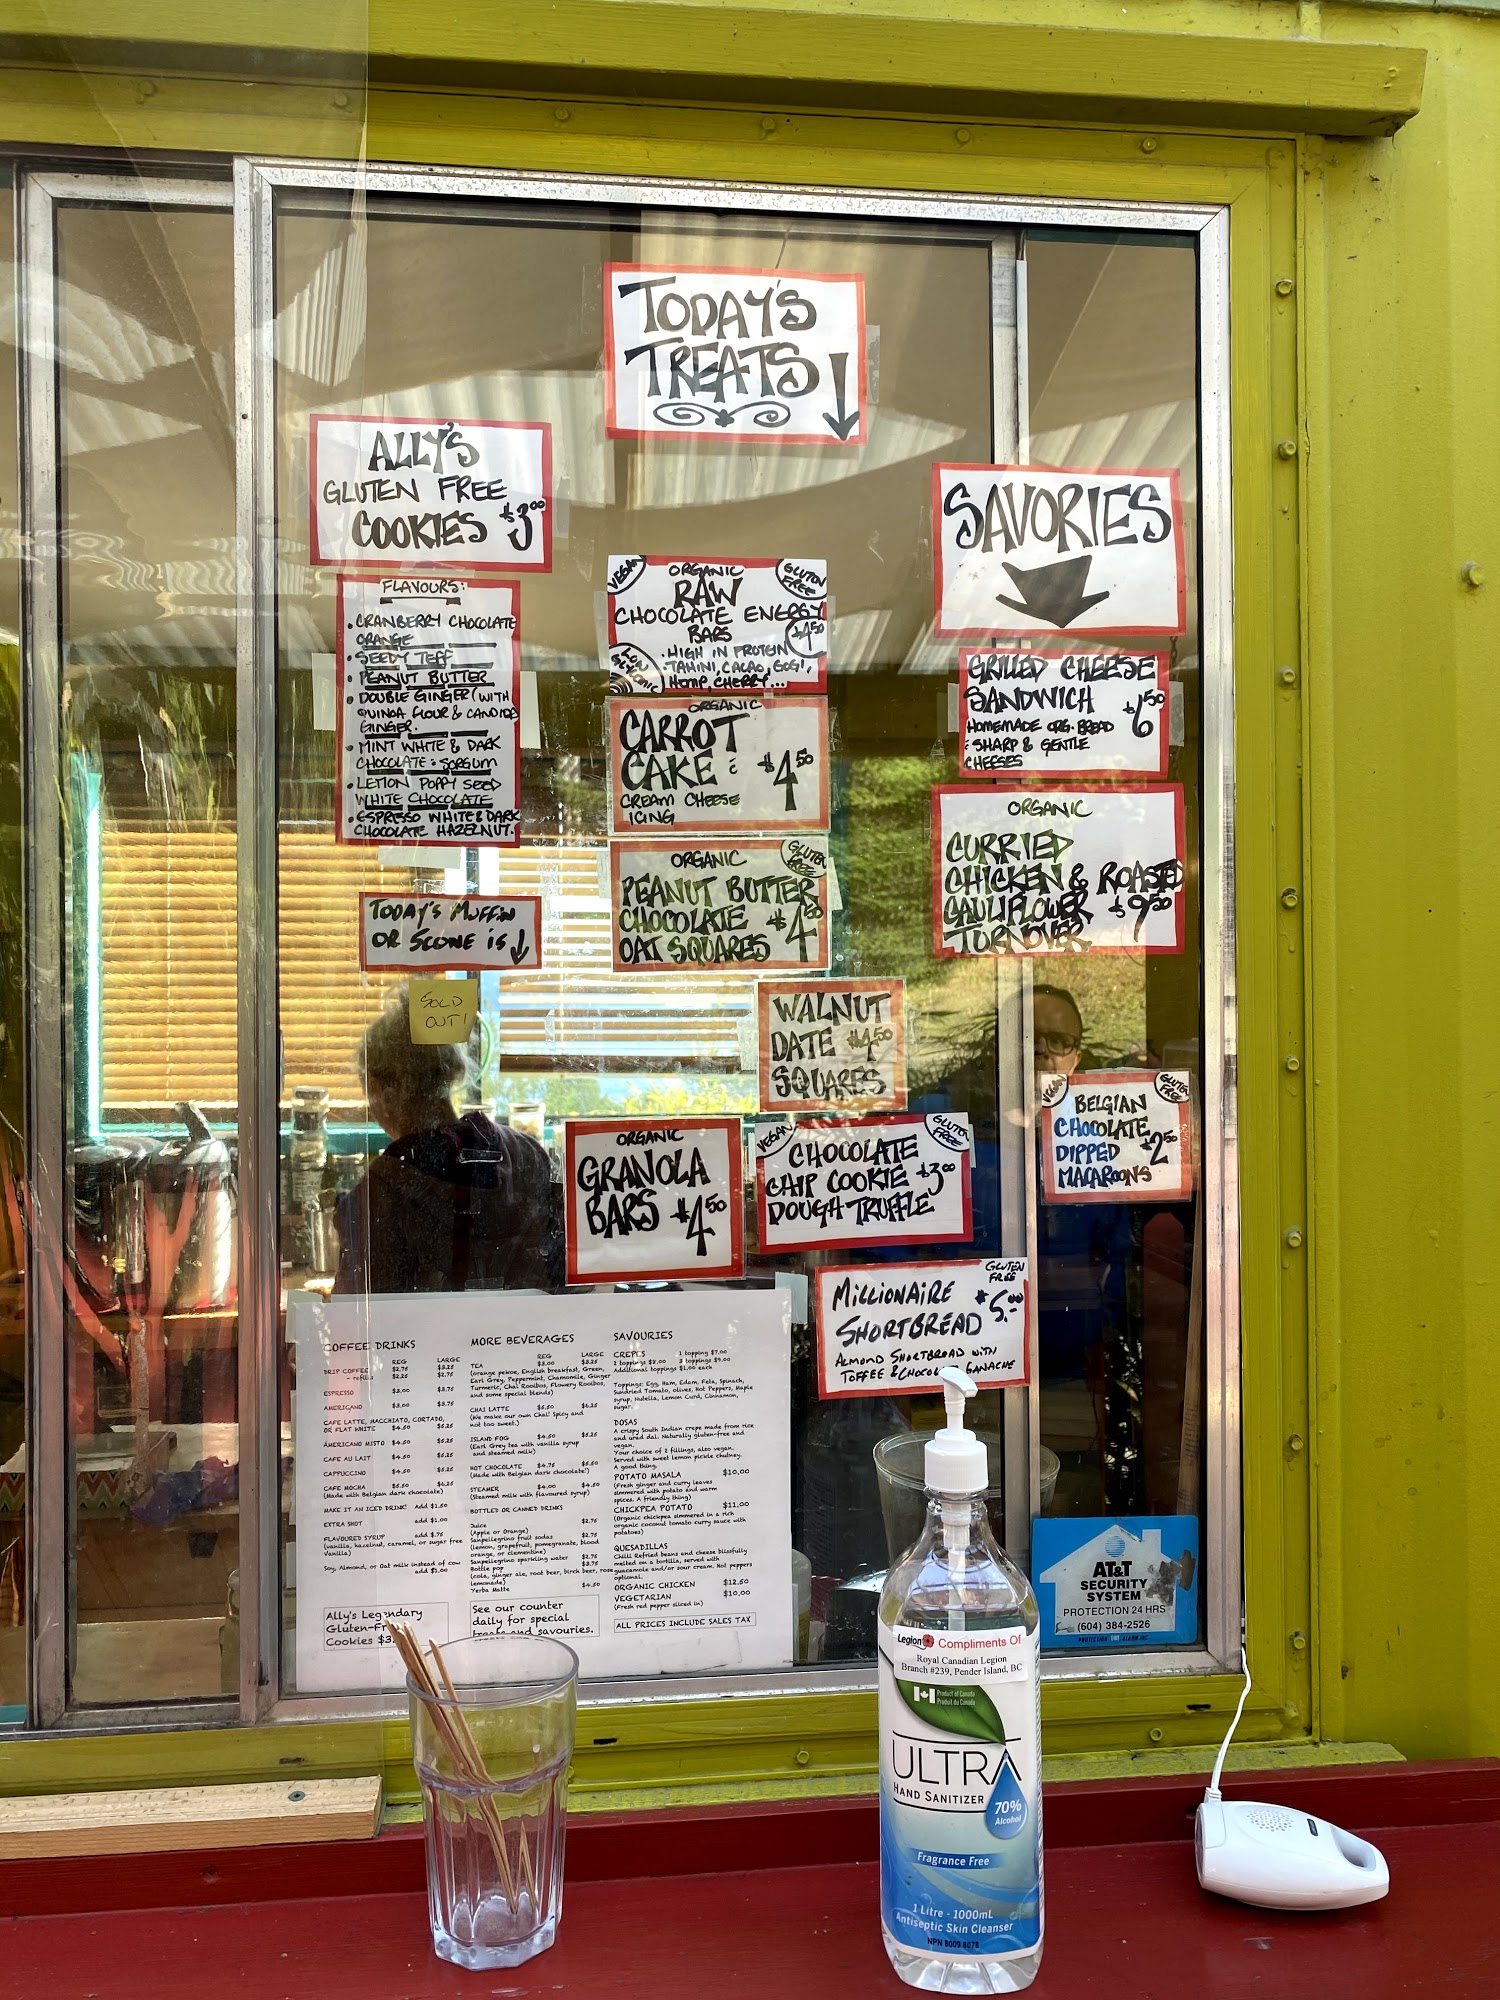 TODAY'S
TREATS
ALLY'S
GLUTEN FREE
COOKIES $3.00
FLAVOURS:
• CRANBERRY CHOCOLATE
ORANGE
• SEEDY TEFF
• PEANUT BUTTER
• DOUBLE GINGER (WITH
QUINOA FLOUR & CANDIED
GINGER.
• MINT WHITE & DARK
CHOCOLATE & SORGUM
• LEMON POPPY SEED
WHITE CHOCOLATE
• ESPRESSO WHITE & DARK
CHOCOLATE HAZELNUT.
TODAY'S MUFFIN
OR SCONE IS
SOLD
OUT!
VEGAN
GLUTEN
FREE
ORGANIC
RAW
CHOCOLATE ENERGY
BARS $4.50
LOW
GLYCEMIC
• HIGH IN PROTEIN
• TAHINI, CACAO, GOGI,
HEMP, CHERRY...
ORGANIC
CARROT
CAKE & $4.50
CREAM CHEESE
ICING
GLUTEN
FREE
ORGANIC
PEANUT BUTTER
CHOCOLATE
OAT SQUARES $4.50
WALNUT
DATE $4.50
SQUARES
ORGANIC
GRANOLA
BARS $4.50
VEGAN
GLUTEN
FREE
CHOCOLATE
CHIP COOKIE $3.00
DOUGH TRUFFLE
GLUTEN
FREE
MILLIONAIRE $5.00
SHORTBREAD
ALMOND SHORTBREAD WITH
TOFFEE & CHOCOLATE GANACHE
SAVORIES
GRILLED CHEESE
SANDWICH $6.50
HOMEMADE ORG. BREAD
& SHARP & GENTLE
CHEESES
ORGANIC
CURRIED
CHICKEN & ROASTED
CAULIFLOWER $9.50
TURNOVER
VEGAN
GLUTEN
FREE
BELGIAN
CHOCOLATE
DIPPED $2.50
MACAROONS
COFFEE DRINKS
REG LARGE
DRIP COFFEE $2.75 $3.25
- refills $2.25 $2.75
ESPRESSO $3.00 $3.75
AMERICANO $3.00 $3.75
CAFE LATTE, MACCHIATO, CORTADO,
OR FLAT WHITE $4.50 $5.25
AMERICANO MISTO $4.50 $5.25
CAFE AU LAIT $4.50 $5.25
CAPPUCCINO $4.50 $5.25
CAFE MOCHA $5.50 $6.25
(Made with Belgian dark chocolate)
MAKE IT AN ICED DRINK! add $1.50
EXTRA SHOT add $1.00
FLAVOURED SYRUP add $.75
(vanilla, hazelnut, caramel, or sugar free
Vanilla)
Soy, Almond, or Oat milk instead of cow
add $1.00
Ally's Legendary
Gluten-Fr
Cookies $3.
MORE BEVERAGES
REG LARGE
TEA $3.00 $3.25
(orange pekoe, English breakfast, Green,
Earl Grey, Peppermint, Chamomile, Ginger
Turmeric, Chai Rooibos, Flowery Rooibos,
and some special blends)
CHAI LATTE $5.50 $6.25
(We make our own Chai! Spicy and
not too sweet.)
ISLAND FOG $4.50 $5.25
(Earl Grey tea with vanilla syrup
and steamed milk)
HOT CHOCOLATE $4.75 $5.50
(Made with Belgian dark chocolate!)
STEAMER $4.00 $4.50
(Steamed milk with flavoured syrup)
BOTTLED OR CANNED DRINKS
Juice $2.75
(Apple or Orange)
Sanpellegrino fruit sodas $2.75
(lemon, grapefruit, pomegranate, blood
orange, or clementine)
Sanpellegrino sparkling water $2.75
Bottle pop $3.75
(cola, ginger ale, root beer, birch beer, rose
lemonade)
Yerba Matte $4.50
See our counter
daily for special
treats and savouries.
SAVOURIES
CREPES 1 topping $7.00
2 toppings $8.00 3 toppings $9.00
Additional toppings $1.00 each
Toppings: Egg, Ham, Edam, Feta, Spinach,
Sundried Tomato, olives, Hot Peppers, Maple
syrup, Nutella, Lemon Curd, Cinnamon,
sugar.
DOSAS
A crispy South Indian crepe made from rice
and urad dal. Naturally gluten-free and
vegan.
Your choice of 2 fillings, also vegan.
Served with sweet lemon pickle chutney.
A good thing.
POTATO MASALA $10.00
(Fresh ginger and curry leaves
simmered with potato and warm
spices. A friendly thing)
CHICKPEA POTATO $11.00
(Organic chickpea simmered in a rich
organic coconut tomato curry sauce with
potatoes)
QUESADILLAS
Chili Refried beans and cheese blissfully
melted on a tortilla, served with
guacamole and/or sour cream. Hot peppers
optional.
ORGANIC CHICKEN $12.50
VEGETARIAN $10.00
(Fresh red pepper sliced in)
ALL PRICES INCLUDE SALES TAX
AT&T
SECURITY
SYSTEM
PROTECTION 24 HRS
(604) 384-2526
Legion Compliments Of
Royal Canadian Legion
Branch #239, Pender Island, BC
Product of Canada
Produit du Canada
ULTRA
HAND SANITIZER
70%
Alcohol
Fragrance Free
1 Litre - 1000mL
Antiseptic Skin Cleanser
NPN 8009 8078